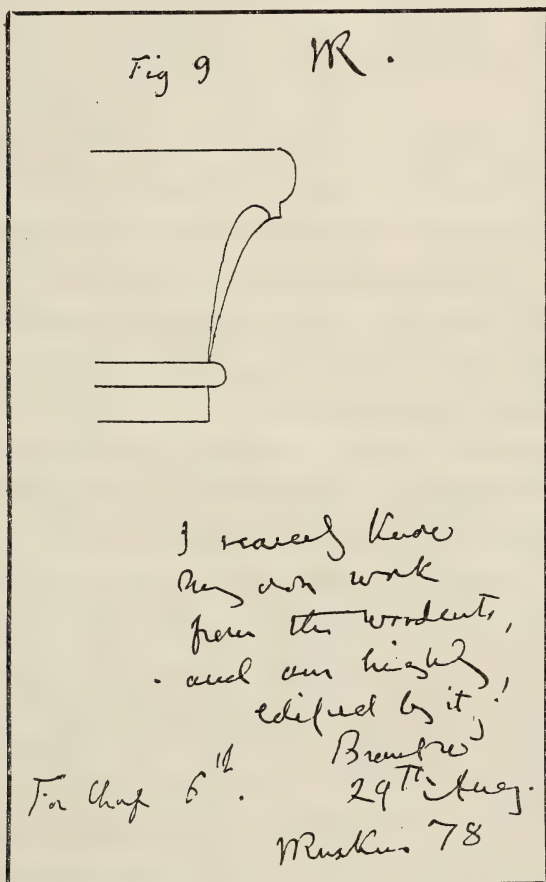 Fig 9 JR.
I scarcely know
my own work
from the woodcuts,
and am highly
edified by it!
Brantwd
29TH Aug.
For Chap 6th.
JRuskin 78